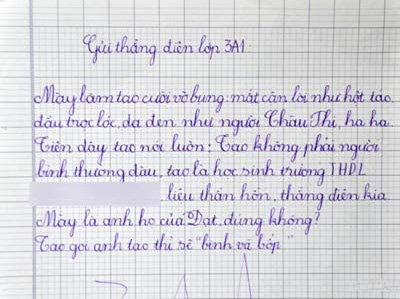 Gửi thằng điên lớp 3A1
Mày làm tao cười vỡ bụng. mắt cận lòi như hột táo,
đầu trọc lóc, da đen như người Châu Thi, ha ha
Tiện đây tao nói luôn: Tao không phải người
bình thường đâu, tao là học sinh trường THDL
liệu thần hồn, thằng điên kia
Mày là anh họ của Đạt, đúng không?
Tao gọi anh tao thì sẽ "bình vã bốp"